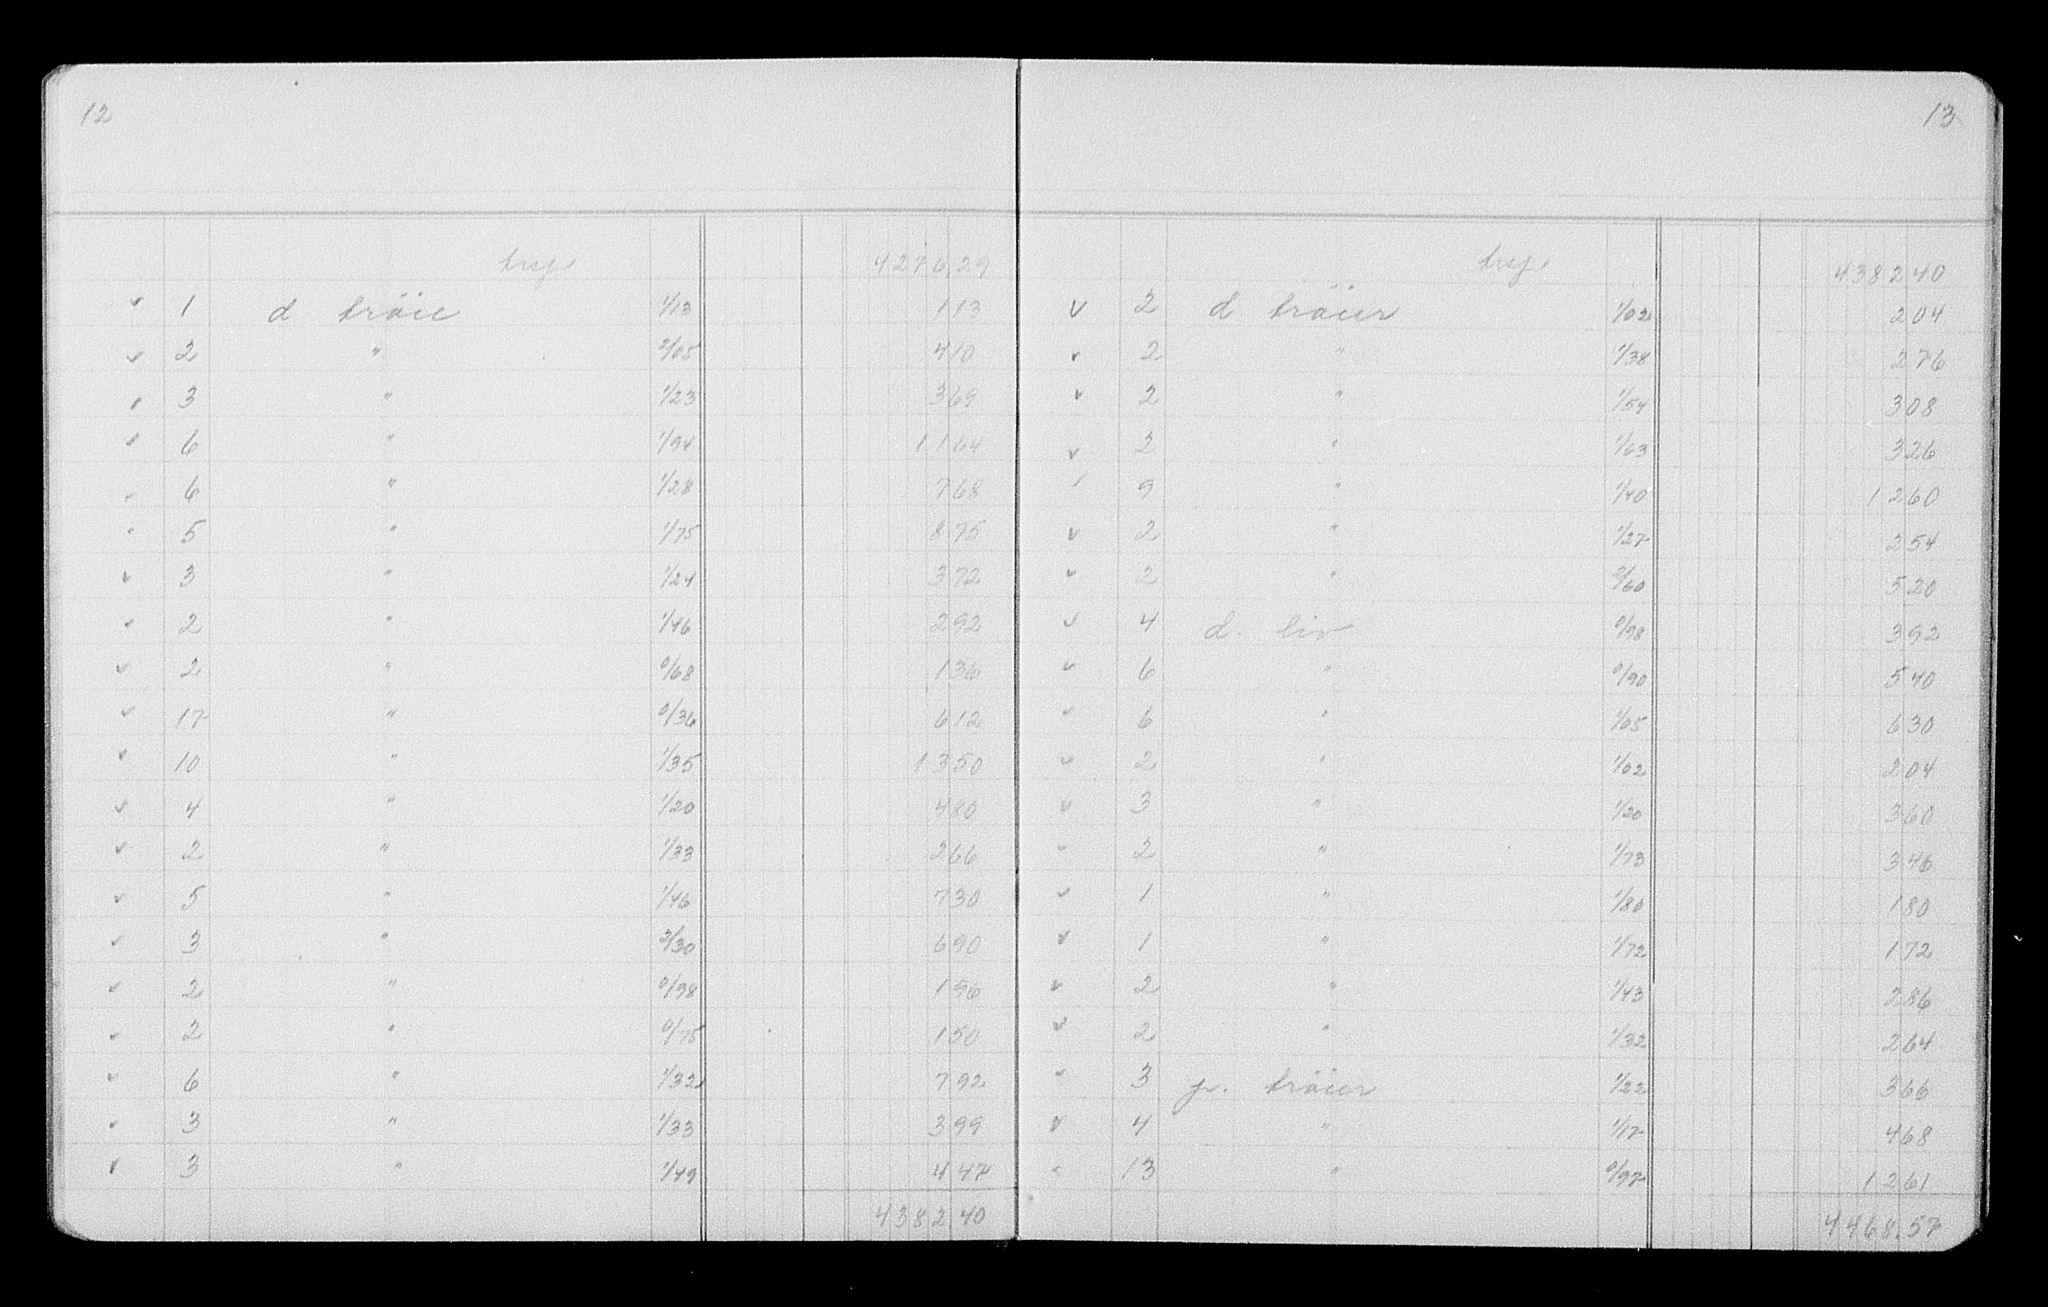 12
trsp. 4276,29
✓ 1 d tröie 1/13 1 13
✓ 2 " 2/05 4 10
✓ 3 " 1/23 3 69
✓ 6 " 1/94 11 64
✓ 6 " 1/28 7 68
✓ 5 " 1/75 8 75
✓ 3 " 1/24 3 72
✓ 2 " 1/46 2 92
✓ 2 " 0/68 1 36
✓ 17 " 0/36 6 12
✓ 10 " 1/35 13 50
✓ 4 " 1/20 4 80
✓ 2 " 1/33 2 66
✓ 5 " 1/46 7 30
✓ 3 " 2/30 6 90
✓ 2 " 0/98 1 96
✓ 2 " 0/75 1 50
✓ 6 " 1/32 7 92
✓ 3 " 1/33 3 99
✓ 3 " 1/49 4 47
4382 40
13
trsp. 4382 40
✓ 2 d tröier 1/02 2 04
✓ 2 " 1/38 2 76
✓ 2 " 1/54 3 08
✓ 2 " 1/63 3 26
✓ 9 " 1/40 12 60
✓ 2 " 1/27 2 54
✓ 2 " 2/60 5 20
✓ 4 d. liv 0/98 3 92
✓ 6 " 0/90 5 40
✓ 6 " 1/05 6 30
✓ 2 " 1/02 2 04
✓ 3 " 1/20 3 60
✓ 2 " 1/73 3 46
✓ 1 " 1/80 1 80
✓ 1 " 1/72 1 72
✓ 2 " 1/43 2 86
✓ 2 " 1/32 2 64
✓ 3 p. tröier 1/22 3 66
✓ 4 " 1/17 4 68
✓ 13 " 0/97 12 61
4468.57